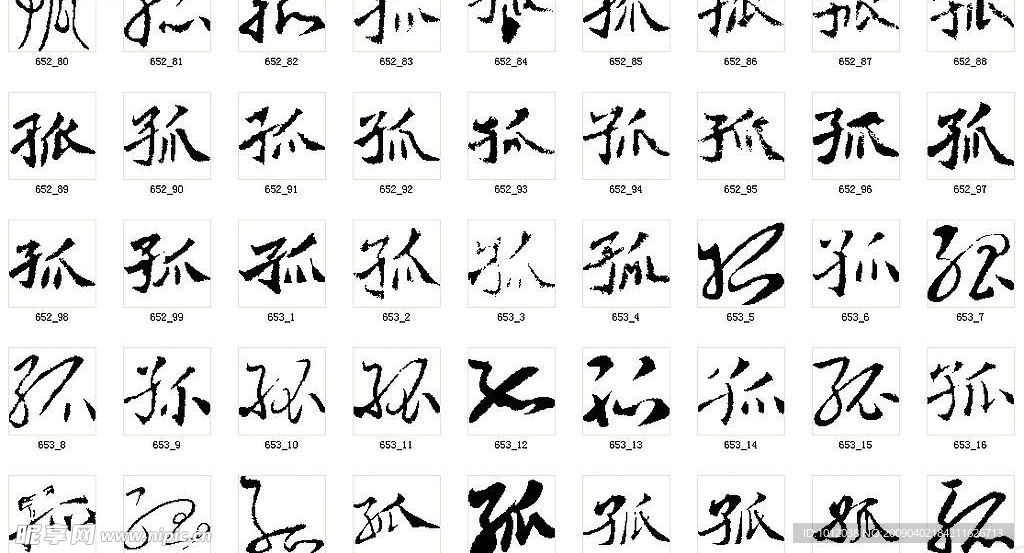 孤 孤 孤 孤 孤 孤 孤 孤 孤
652_80 652_81 652_82 652_83 652_84 652_85 652_86 652_87 652_88
孤 孤 孤 孤 孤 孤 孤 孤 孤
652_89 652_90 652_91 652_92 652_93 652_94 652_95 652_96 652_97
孤 孤 孤 孤 孤 孤 孤 孤 孤
652_98 652_99 653_1 653_2 653_3 653_4 653_5 653_6 653_7
孤 孤 孤 孤 孤 孤 孤 孤 孤
653_8 653_9 653_10 653_11 653_12 653_13 653_14 653_15 653_16
孤 孤 孤 孤 孤 孤 孤 孤 孤
昵享网 www.nipic.cn